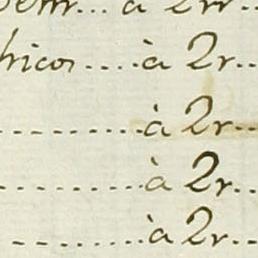 à 2r..
hicos....à 2r..
..........à 2r..
..........à 2r..
..........à 2r..